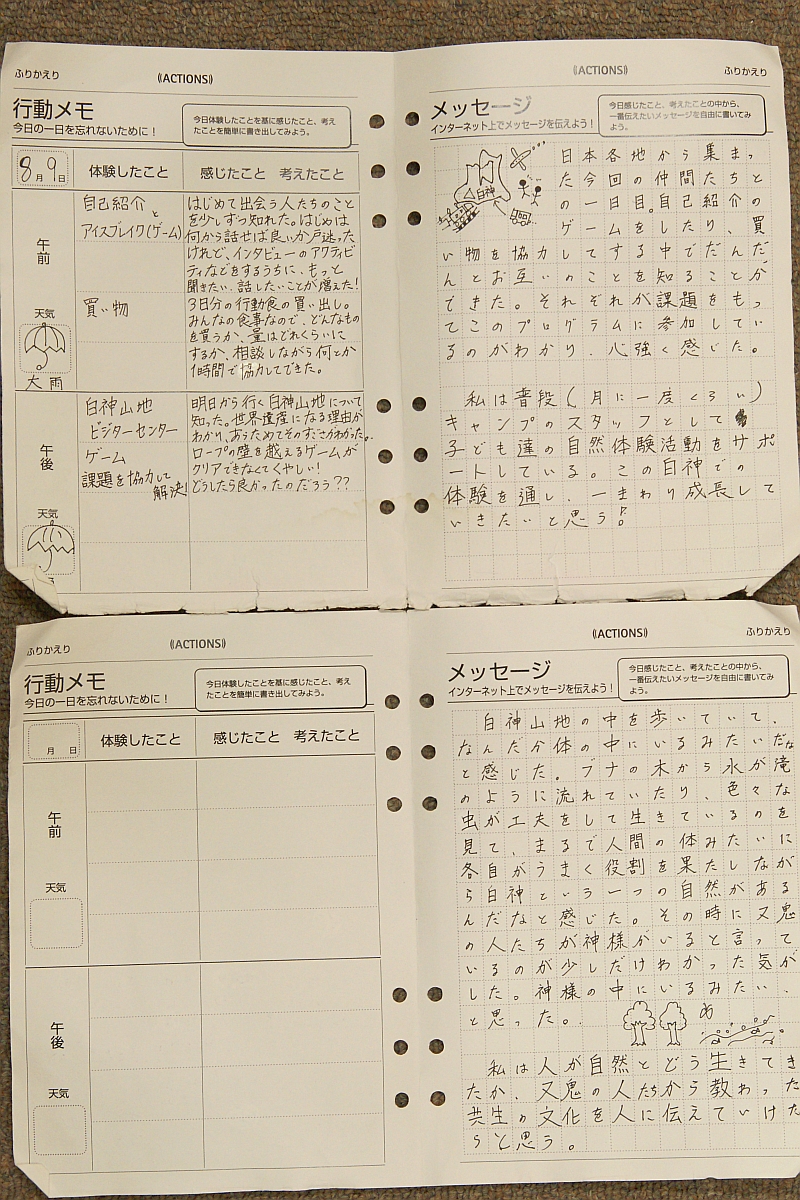 ふりかえり
((ACTIONS))
行動メモ
今日の一日を忘れないために！
今日体験したことを基に感じたこと、考え
たことを簡単に書き出してみよう。
8月9日
体験したこと
感じたこと 考えたこと
午前
天気
大雨
自己紹介
と
アイスブレイク(ゲーム)
はじめて出会う人たちのこと
を少しずつ知れた。はじめは
何から話せば良いか戸迷った
けれど、インタビューのアクティビ
ティなどをするうちに、もっと
聞きたい、話したいことが増えた！
買い物
3日分の行動食の買い出し。
みんなの食事なので、どんなもの
を買うか、量はどれくらいに
するか、相談しながら何とか
1時間で協力してできた。
午後
天気
白神山地
ビジターセンター
ゲーム
課題を協力して
解決！
明日から行く白神山地について
知った。世界遺産になる理由が
わかり、あらためてそのすごさがわかった。
ロープの壁を越えるゲームが
クリアできなくてくやしい！
どうしたら良かったのだろう??
((ACTIONS))
ふりかえり
メッセージ
インターネット上でメッセージを伝えよう！
今日感じたこと、考えたことの中から、
一番伝えたいメッセージを自由に書いてみ
よう。
白神
日本各地から集まっ
た今回の仲間たちと
の一日目。自己紹介の
ゲームをしたり、買
い物を協力してする中でだんだ
んとお互いのことを知ることが
できた。それぞれが課題をもっ
てこのプログラムに参加してい
るのがわかり、心強く感じた。
私は普段(月に一度くらい)
キャンプのスタッフとして
子ども達の自然体験活動をサポ
ートしている。この白神での
体験を通し、一まわり成長して
いきたいと思う!!
ふりかえり
((ACTIONS))
行動メモ
今日の一日を忘れないために！
今日体験したことを基に感じたこと、考え
たことを簡単に書き出してみよう。
月 日
体験したこと
感じたこと 考えたこと
午前
天気
午後
天気
((ACTIONS))
ふりかえり
メッセージ
インターネット上でメッセージを伝えよう！
今日感じたこと、考えたことの中から、
一番伝えたいメッセージを自由に書いてみ
よう。
白神山地の中を歩いていて、
なんだか体の中にいるみたいだな
と感じた。ブナの木から水が滝
のように流れていたり、色々な
虫が工夫をして生きているのを
見て、まるで人間の体みたいに
各自がうまく役割を果たしなが
ら白神という一つの自然がある
んだなと感じた。その時に又鬼
の人たちが神様がいると言って
いるのが少しだけわかった気が
した。神様の中にいるみたい、
と思った。
私は人が自然とどう生きてき
たか、又鬼の人たちから教わった
共生の文化を人に伝えていけた
らと思う。